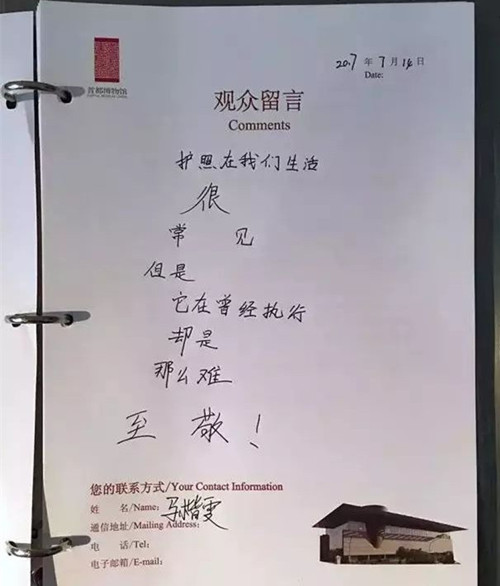 首都博物馆
2017 年 7 月 14 日
Date:
观众留言
Comments
护照在我们生活
很
常 见
但是
它在曾经执行
却是
那么难
至 敬！
您的联系方式/Your Contact Information
姓 名/Name: 马楷雯
通信地址/Mailing Address:
电 话/Tel:
电子邮箱/E-mail: